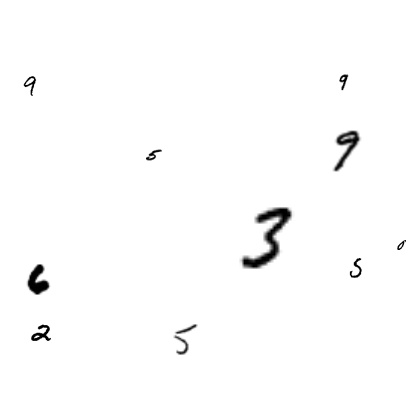 9 9
5 9
3
6 5
2 5